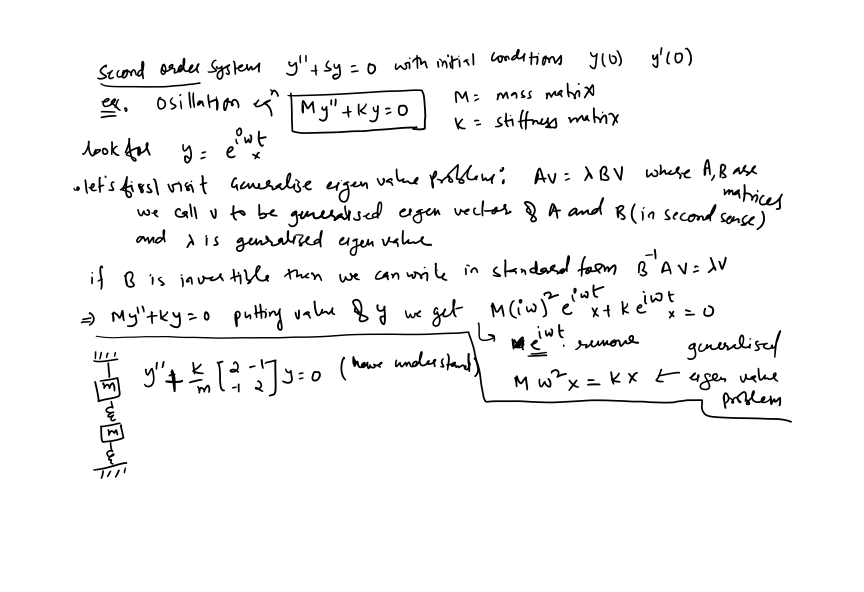 Second order system y'' + Sy = 0 with initial conditions y(0) y'(0)
ex. Osillation eqⁿ My'' + Ky = 0 M = mass matrix
K = stiffness matrix
look for y = e^{iwt} x
• let's first visit Generalise eigen value problem: Av = λBv where A, B are matrices
we call v to be generalised eigen vector of A and B (in second sense)
and λ is generalised eigen value
if B is invertible then we can write in standard form B⁻¹Av = λv
⇒ My''+Ky=0 putting value of y we get M(iw)² e^{iwt} x + K e^{iwt} x = 0
↳ e^{iwt} remove
Mw²x = Kx ← generalised eigen value problem
y'' + k/m [2 -1
-1 2] y = 0 (have understand)
m
m